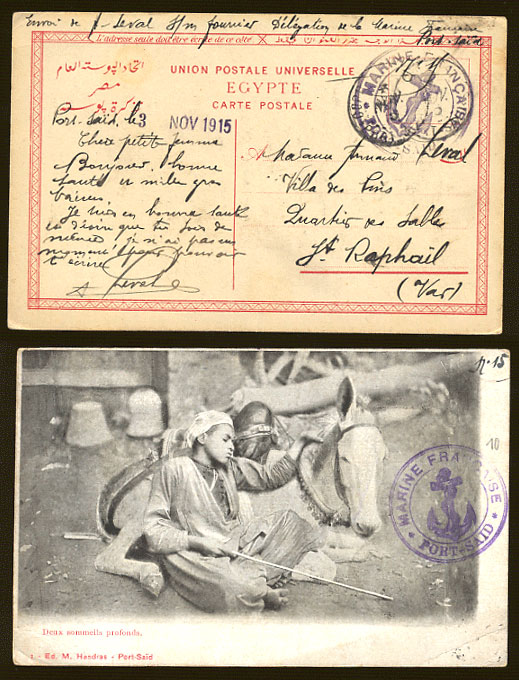 Envoi de Leval S/m Fourrier Délégation de la Marine Française
Port-Said
L'adresse seule doit être écrite de ce côté
UNION POSTALE UNIVERSELLE
EGYPTE
CARTE POSTALE
اتحاد البوستة العام
مصر
تذكرة بوستة
MARINE FRANÇAISE
Port-Said, le 3 NOV 1915
Chère petite femme
Bonjour, bonne
santé et mille gros
baisers.
Je suis en bonne santé
et désire que tu sois de
même je n'ai pas un
moment pour pouvoir
t'écrire
Leval
Madame Fernand Leval
Villa des Pins
Quartier des Sables
St Raphaël
(Var)
n. 15
10
MARINE FRANÇAISE
PORT-SAID
Deux sommeils profonds.
Ed. M. Handras - Port-Saïd